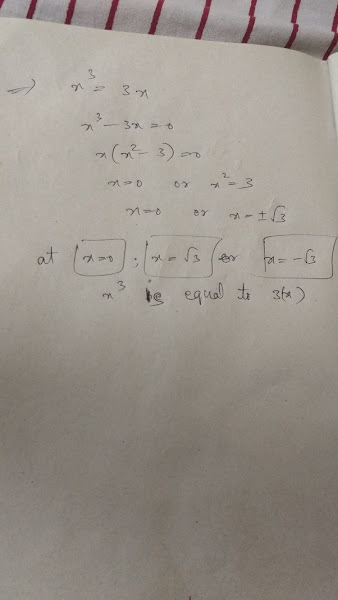 => x³ = 3x
x³ - 3x = 0
x(x² - 3) = 0
x=0 or x² = 3
x=0 or x = ±√3
at x=0 ; x = √3 or x = -√3
x³ is equal to 3(x)